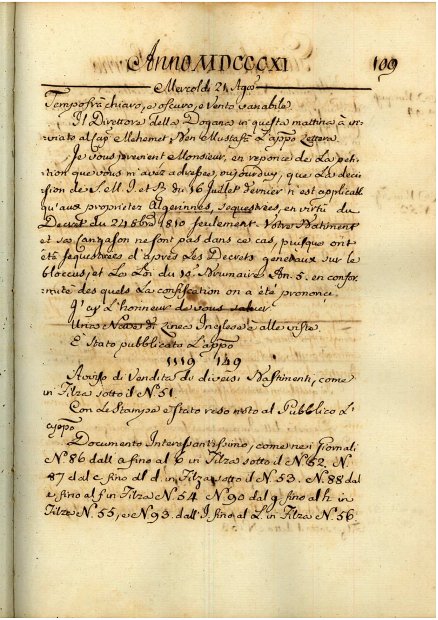 Anno MDCCCXI 109
Mercoldi 21 Agō
Tempo frà chiaro, e oscuro, e vento variabile
Il Direttore della Dogana in questa mattina à in-
viato al Cap. Mehemet Ben Mustafà l'appō Lettera.
Je vous previent Monsieur, en reponce de la peti-
tion que vous m'avez adressée, oujourduy, que la deci-
sion de S. M. I. et R. du 16 Juillet dernier n'est applicable
qu'aux proprietez Algeriennes, sequestrées, en vertu du
Decret du 24 1810 seulement. Votre Batiment
et sa Cargaison ne sont pas dans ce cas, puisque ont
été sequestrées d'après les Decrets generaux sur le
bloccus, et la Loi du 10 Brumaire An. 5. en confor-
mité des quels la confiscation on a été prononcé
J'ay l'honneur de vous saluer
Una Nave di Linea Inglese è alle viste.
È stato pubblicato l'appō
1119 149
Avviso di Vendita di diversi Bastimenti, come
in Filza sotto il Nº 51
Con le Stampe è stato reso noto al Pubblico l'
appō
Documento Interessantissimo, come nei Giornali
Nº 86 dall' a fino al b in Filza sotto il Nº 52, Nº
87 dal c fino al d in Filza sotto il Nº 53. Nº 88 dal
e fino al f in Filza Nº 54. Nº 90 dal g fino al h in
Filza Nº 55, e Nº 93. dall' I fino al L in Filza Nº 56.